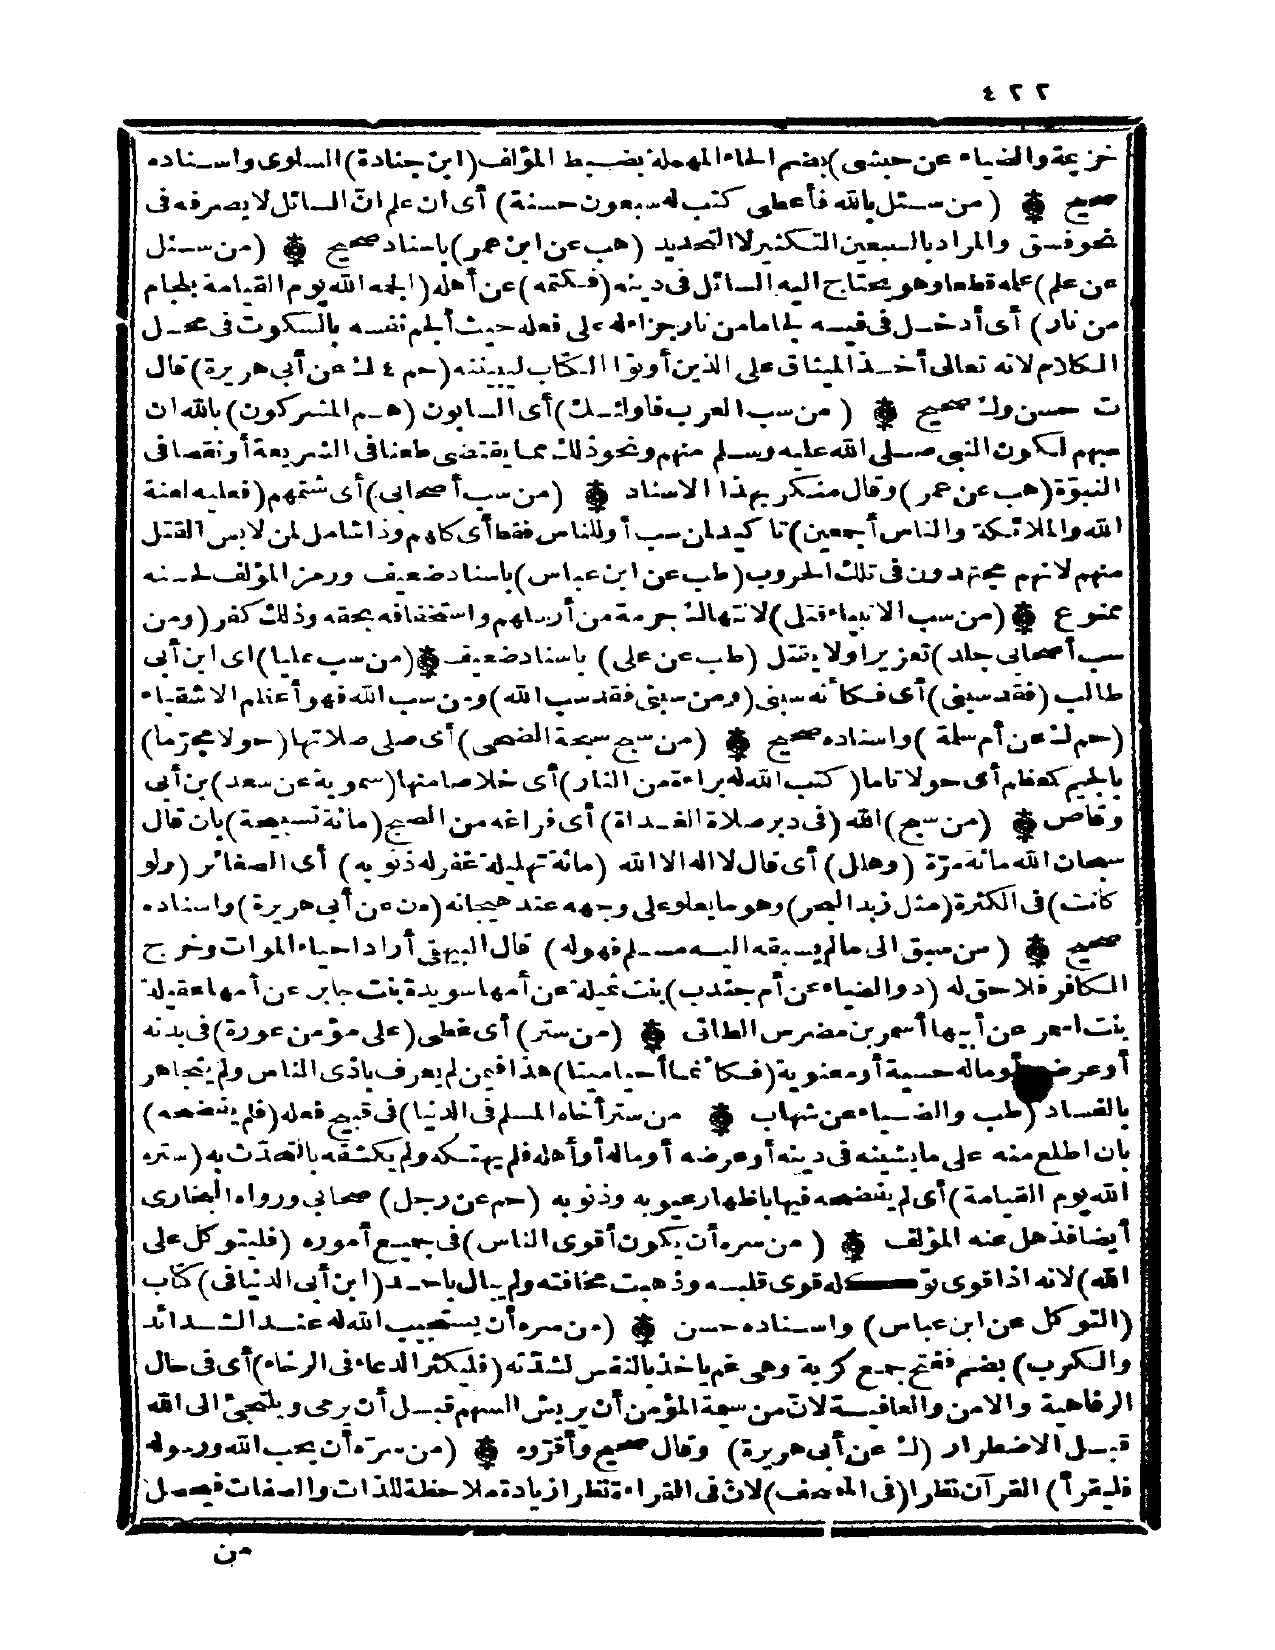 ٤٢٢
خزيمة والضياء عن حبشى) بضم الحاء المهملة بضبط المؤلف (ابن جنادة) السلوى واسناده
صحيح ۞ (من سئل بالله فأعطى كتب له سبعون حسنة) أى ان علم انّ السائل لا يصرفه فى
نحو فسق والمراد بالسبعين التكثير لا التحديد (هب عن ابن عمر) باسناد صحيح ۞ (من سئل
عن علم) علمه قطعا وهو يحتاج اليه السائل فى دينه (فكتمه) عن أهله (ألجمه الله يوم القيامة بلجام
من نار) أى أدخل فى فيه لجاما من نار جزاء له على فعله حيث ألجم نفسه بالسكوت فى محل
الكلام لانه تعالى أخذ الميثاق على الذين أوتوا الكتاب ليبيننه (حم ٤ ك عن أبى هريرة) قال
ت حسن وك صحيح ۞ (من سب العرب فاولئك) أى السابون (هم المشركون) بالله ان
سبهم لكون النبى صلى الله عليه وسلم منهم ونحو ذلك مما يقتضى طعنا فى الشريعة أو نقصا فى
النبوّة (هب عن عمر) وقال منكر بهذا الاسناد ۞ (من سب أصحابى) أى شتمهم (فعليه لعنة
الله والملائكة والناس أجمعين) تأكيد لمن سب أو للناس فقط أى كلهم وذا شامل لمن لابس القتل
منهم لانهم مجتهدون فى تلك الحروب (طب عن ابن عباس) باسناد ضعيف ورمز المؤلف لحسنه
ممنوع ۞ (من سب الانبياء قتل) لانتهاك حرمة من أرسلهم واستخفافه بحقه وذلك كفر (ومن
سب أصحابى جلد) تعزيرا ولا يقتل (طب عن على) باسناد ضعيف ۞ (من سب عليا) اى ابن أبى
طالب (فقد سبنى) أى فكأنه سبنى (ومن سبنى فقد سب الله) ومن سب الله فهو أعظم الاشقياء
(حم ك عن أم سلمة) واسناده صحيح ۞ (من سبح سبحة الضحى) أى صلى صلاتها (حولا مجرّما)
بالجيم كمعظم أى حولا تاما (كتب الله له براءة من النار) أى خلاصا منها (سموية عن سعد) بن أبى
وقاص ۞ (من سبح) الله (فى دبر صلاة الغداة) أى فراغه من الصبح (مائة تسبيحة) بان قال
سبحان الله مائة مرّة (وهلل) أى قال لا اله الا الله (مائة تهليلة غفر له ذنوبه) أى الصغائر (ولو
كانت) فى الكثرة (مثل زبد البحر) وهو ما يعلو على وجهه عند هيجانه (ن عن أبى هريرة) واسناده
صحيح ۞ (من سبق الى ما لم يسبقه اليه مسلم فهو له) قال البيهقى أراد احياء الموات وخرج
الكافر فلا حق له (د والضياء عن أم جندب) بنت نميلة عن أمها سويدة بنت جابر عن أمها عقيلة
بنت اسمر عن أبيها أسمر بن مضرس الطائى ۞ (من ستر) أى غطى (على مؤمن عورة) فى بدنه
أو عرضه أو ماله حسية أو معنوية (فكأنما أحيا ميتا) هذا فيمن لم يعرف باذى الناس ولم يتجاهر
بالفساد (طب والضياء عن شهاب ۞ من ستر أخاه المسلم فى الدنيا) فى قبيح فعله (فلم يفضحه)
بان اطلع منه على ما يشينه فى دينه أو عرضه أو ماله أو أهله فلم يهتكه ولم يكشفه بالتحدث به (ستره
الله يوم القيامة) أى لم يفضحه فيها باظهار عيوبه وذنوبه (حم عن رجل) صحابى ورواه البخارى
أيضا فذهل عنه المؤلف ۞ (من سره أن يكون أقوى الناس) فى جميع أموره (فليتوكل على
الله) لانه اذا قوى توكله قوى قلبه وذهبت مخافته ولم يبال باحد (ابن أبى الدنيا فى) كتاب
(التوكل عن ابن عباس) واسناده حسن ۞ (من سره أن يستجيب الله له عند الشدائد
والكرب) بضم ففتح جمع كربة وهى غم ياخذ بالنفس لشدّته (فليكثر الدعاء فى الرخاء) أى فى حال
الرفاهية والامن والعافية لانّ من سمة المؤمن أن يريش السهم قبل أن يرمى ويلتجئ الى الله
قبل الاضطرار (ك عن أبى هريرة) وقال صحيح وأقرّوه ۞ (من سرّه أن يحب الله ورسوله
فليقرأ) القرآن نظرا (فى المصحف) لانّ فى القراءة نظرا زيادة ملاحظة للذات والصفات فيحصل
من